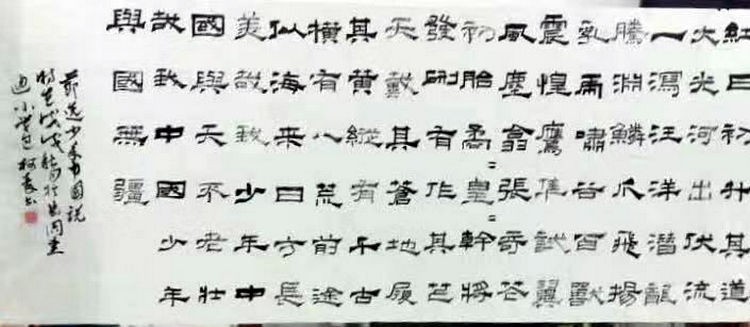 紅日初升其道
大光河出伏流
一瀉汪洋潛龍
騰淵鱗爪飛揚
乳虎嘯谷百獸
震惶鷹隼試翼
風塵翕張奇花
初胎矞=皇=幹將
發硎有作其芒
天戴其蒼地履
其黃縱有千古
橫有八荒前途
似海來日方長
美哉我少年中
國與天不老壯
哉我中國少年
與國無疆
節選少年中國說